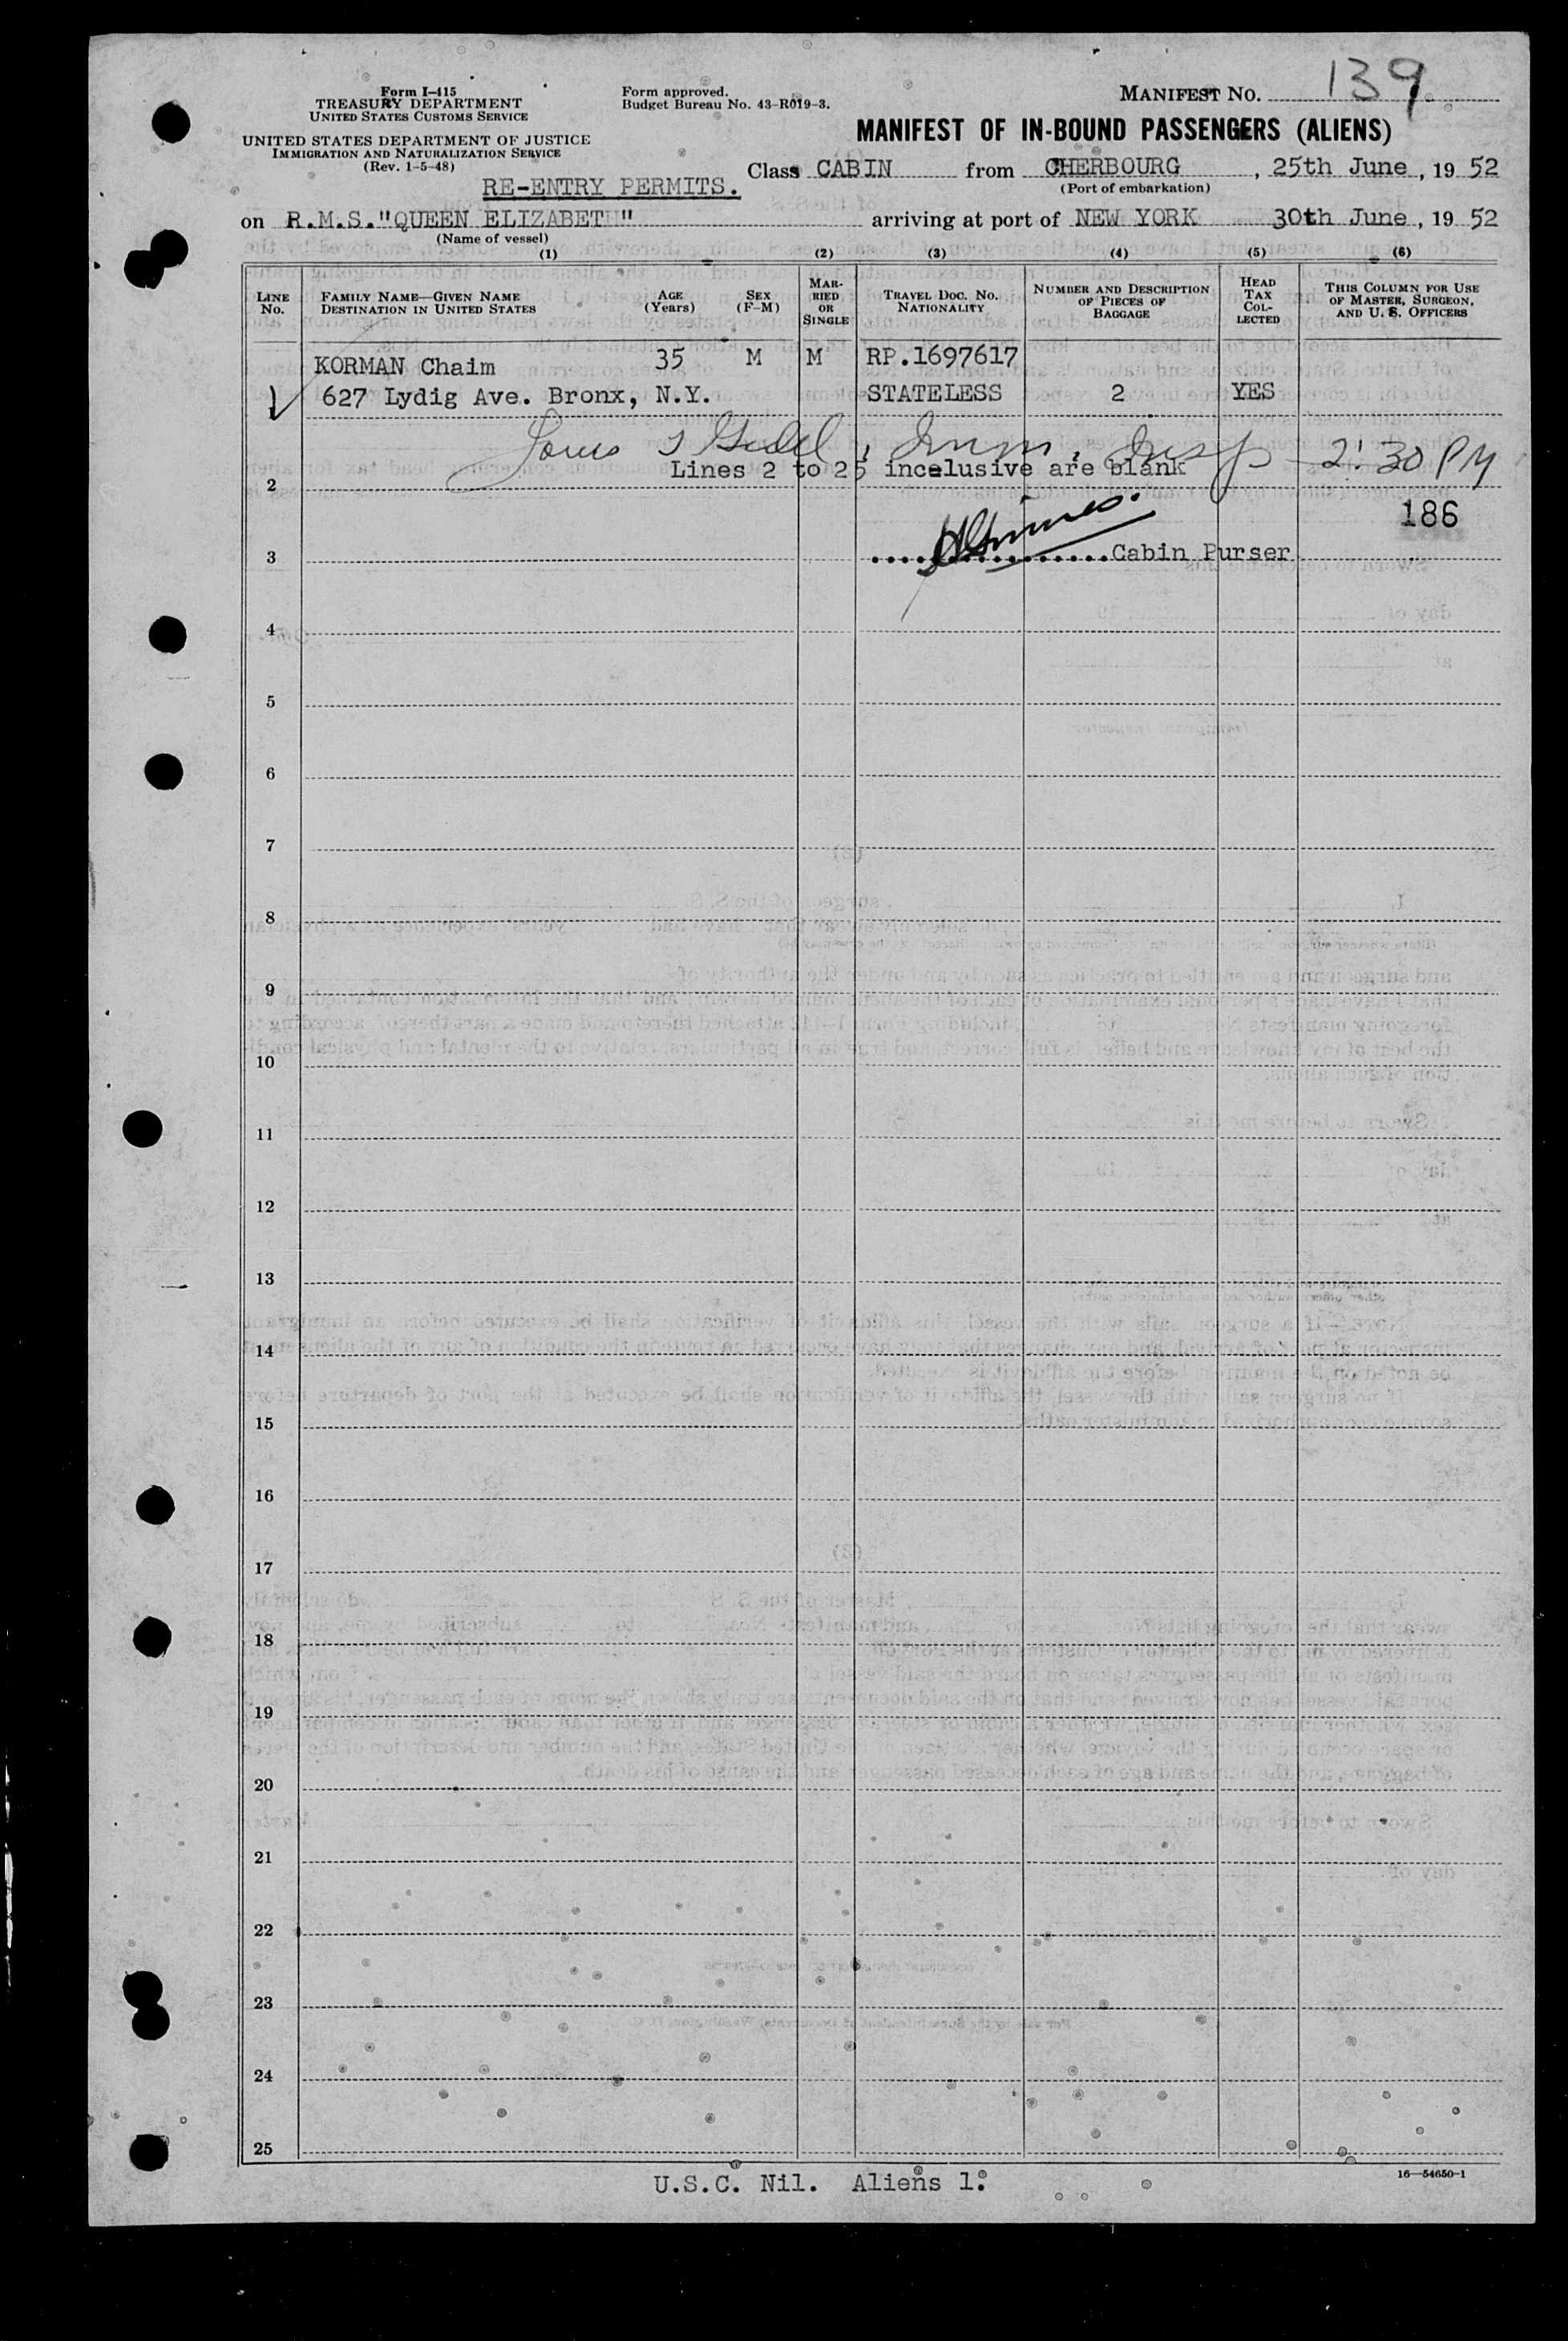 Form I-415
TREASURY DEPARTMENT
UNITED STATES CUSTOMS SERVICE
UNITED STATES DEPARTMENT OF JUSTICE
IMMIGRATION AND NATURALIZATION SERVICE
(Rev. 1-5-48)
Form approved.
Budget Bureau No. 43-R019-3.
MANIFEST NO. 139
MANIFEST OF IN-BOUND PASSENGERS (ALIENS)
RE-ENTRY PERMITS.
Class CABIN from CHERBOURG, 25th June, 19 52
(Port of embarkation)
on R.M.S."QUEEN ELIZABETH" arriving at port of NEW YORK 30th June, 19 52
(Name of vessel)
(1) (2) (3) (4) (5) (6)
LINE No.
FAMILY NAME—GIVEN NAME
DESTINATION IN UNITED STATES
AGE (Years)
SEX (F-M)
MARRIED OR SINGLE
TRAVEL DOC. NO. NATIONALITY
NUMBER AND DESCRIPTION OF PIECES OF BAGGAGE
HEAD TAX COLLECTED
THIS COLUMN FOR USE OF MASTER, SURGEON, AND U. S. OFFICERS
KORMAN Chaim 35 M M RP.1697617
627 Lydig Ave. Bronx, N.Y. STATELESS 2 YES
Louis, Imm. Insp 2:30 PM
Lines 2 to 25 incelusive are blank
2
186
3 ..................Cabin Purser
4
5
6
7
8
9
10
11
12
13
14
15
16
17
18
19
20
21
22
23
24
25
U.S.C. Nil. Aliens 1.
16—54650-1